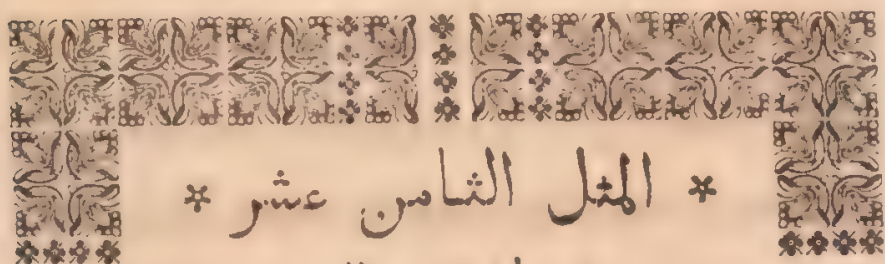 * المثل الثامن عشر *